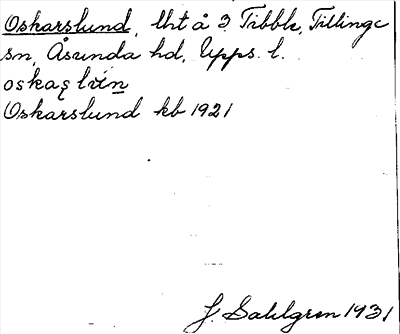 Oskarslund, lht å 3 Tibble, Tillinge
sn, Åsunda hd, Upps. l.
Oskarslund kb 1921
J. Sahlgren 1931